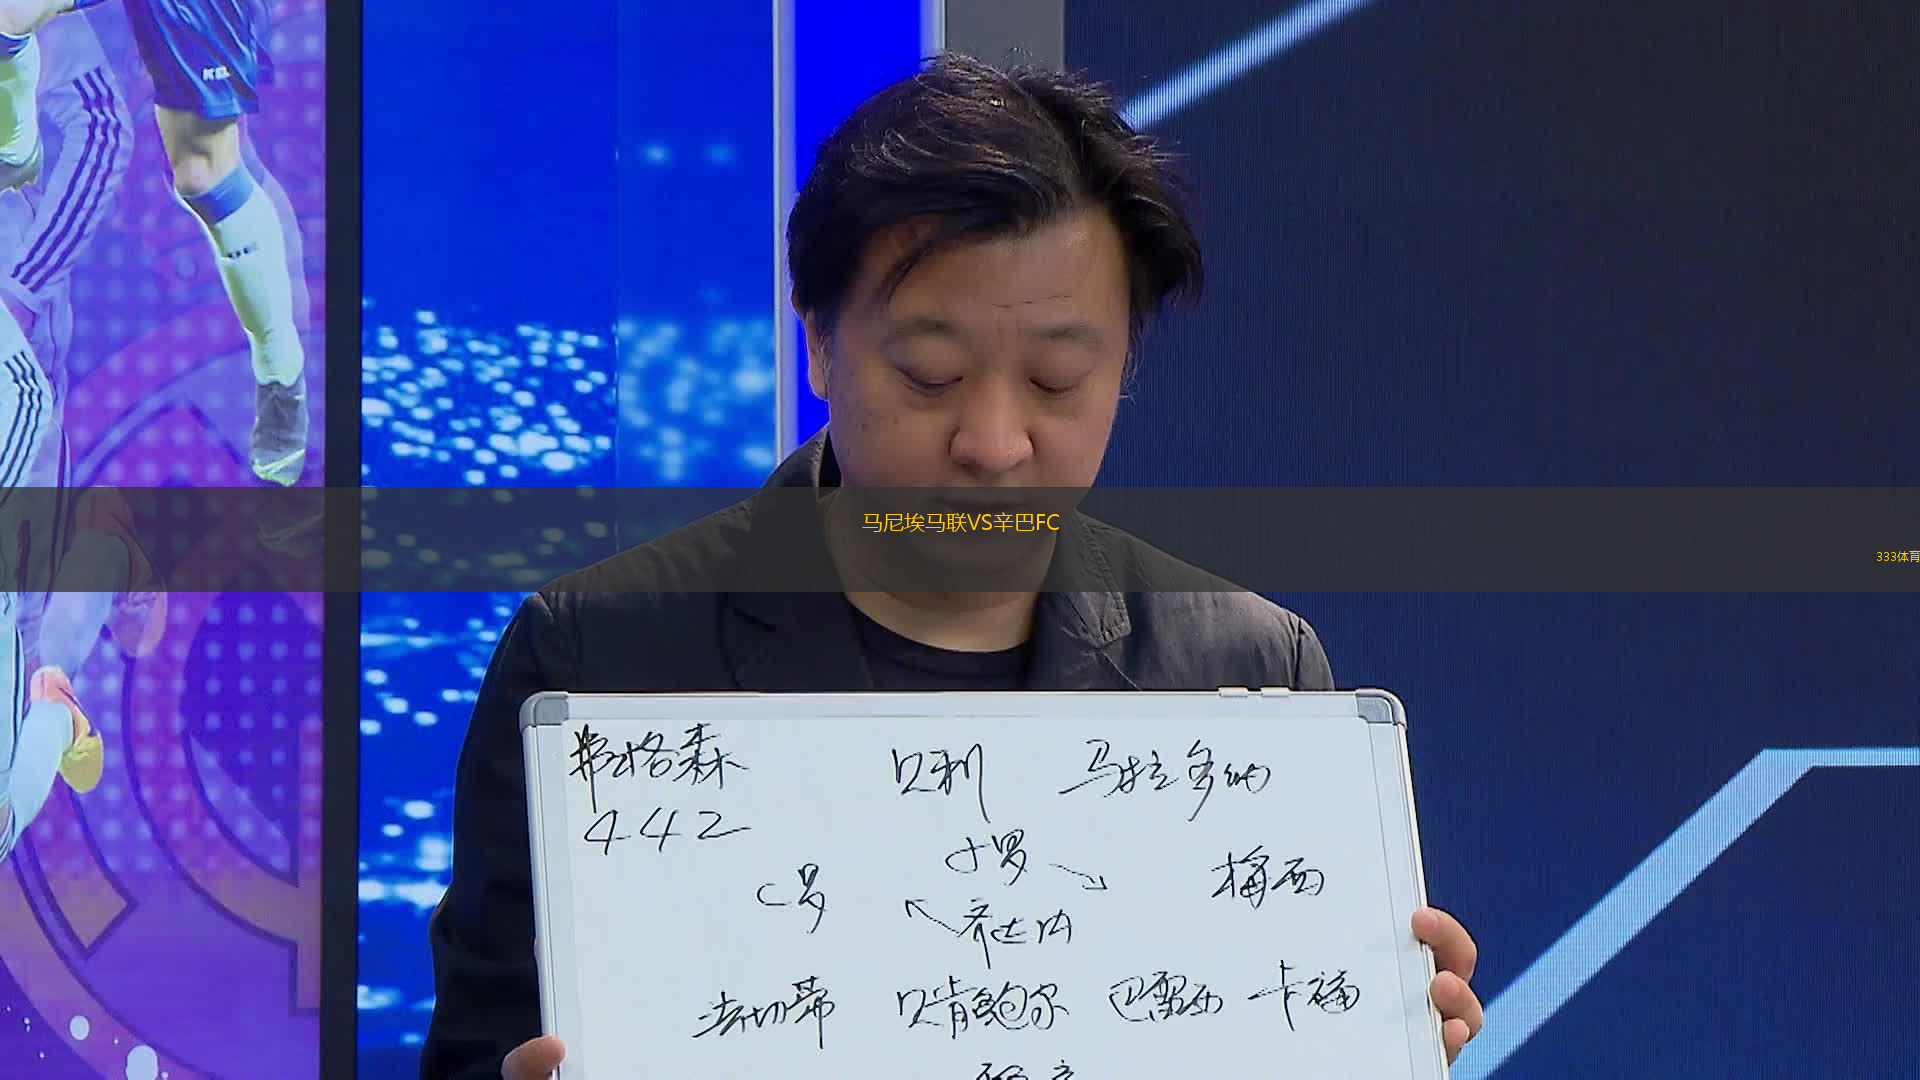 马尼埃马联VS辛巴FC
333体育
弗格森 贝利 马拉多纳
442
小罗
C罗 梅西
齐达内
法切蒂 贝肯鲍尔 巴雷西 卡福